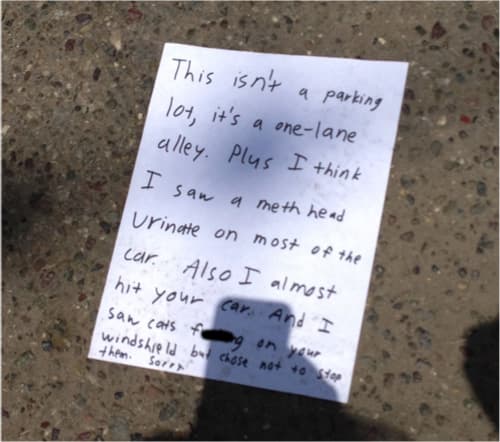 This isn't a parking
lot, it's a one-lane
alley. Plus I think
I saw a meth head
urinate on most of the
car. Also I almost
hit your car. And I
saw cats f g on your
windshield but chose not to stop
them. Sorry